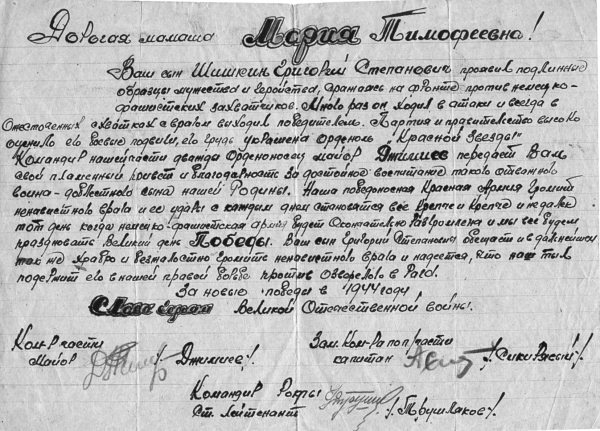 Дорогая мамаша Мария Тимофеевна!
Ваш сын Шишкин Григорий Степанович проявил подлинные
образцы мужества и геройства, сражаясь на фронте против немецко-
фашистских захватчиков. Много раз он ходил в атаки и всегда в
ожесточенных схватках с врагом выходил победителем. Партия и правительство высоко
оценило его боевые подвиги, его грудь украшена орденом "Красной Звезды"
Командир нашей части дважды Орденоносец майор Джимиев передаёт Вам
свой пламенный привет и благодарность за достойное воспитание такого отважного
воина - доблестного сына нашей Родины. Наша победоносная Красная Армия громит
ненавистного врага и её удары с каждым днем становятся всё крепче и крепче и недалек
тот день когда немецко-фашистская армия будет окончательно разгромлена и мы все будем
праздновать Великий день Победы. Ваш сын Григорий Степанович обещает и в дальнейшем
так же храбро и безжалостно громить ненавистного врага и надеется, что наш тыл
поддержит его в нашей правой борьбе против озверелого врага.
За новые победы в 1944 году
Слава героям Великой Отечественной войны.
Ком-р части
майор /Джимиев/.
Зам. Ком-ра по п/части
капитан
Командир роты
Ст. лейтенант